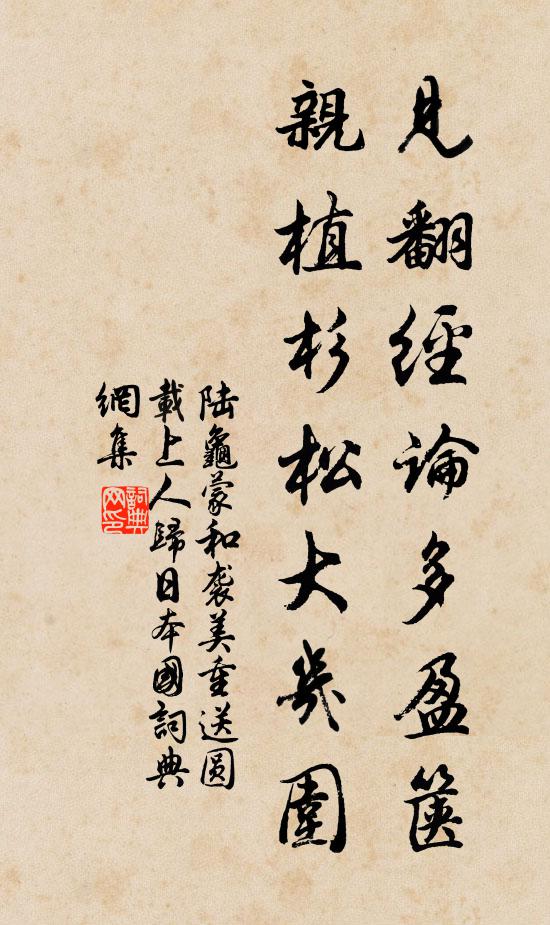 見翻經論多盈篋
親植杉松大幾圍
陸龜蒙和袭美重送圆
載上人歸日本國詞典
網集
詞典
网印